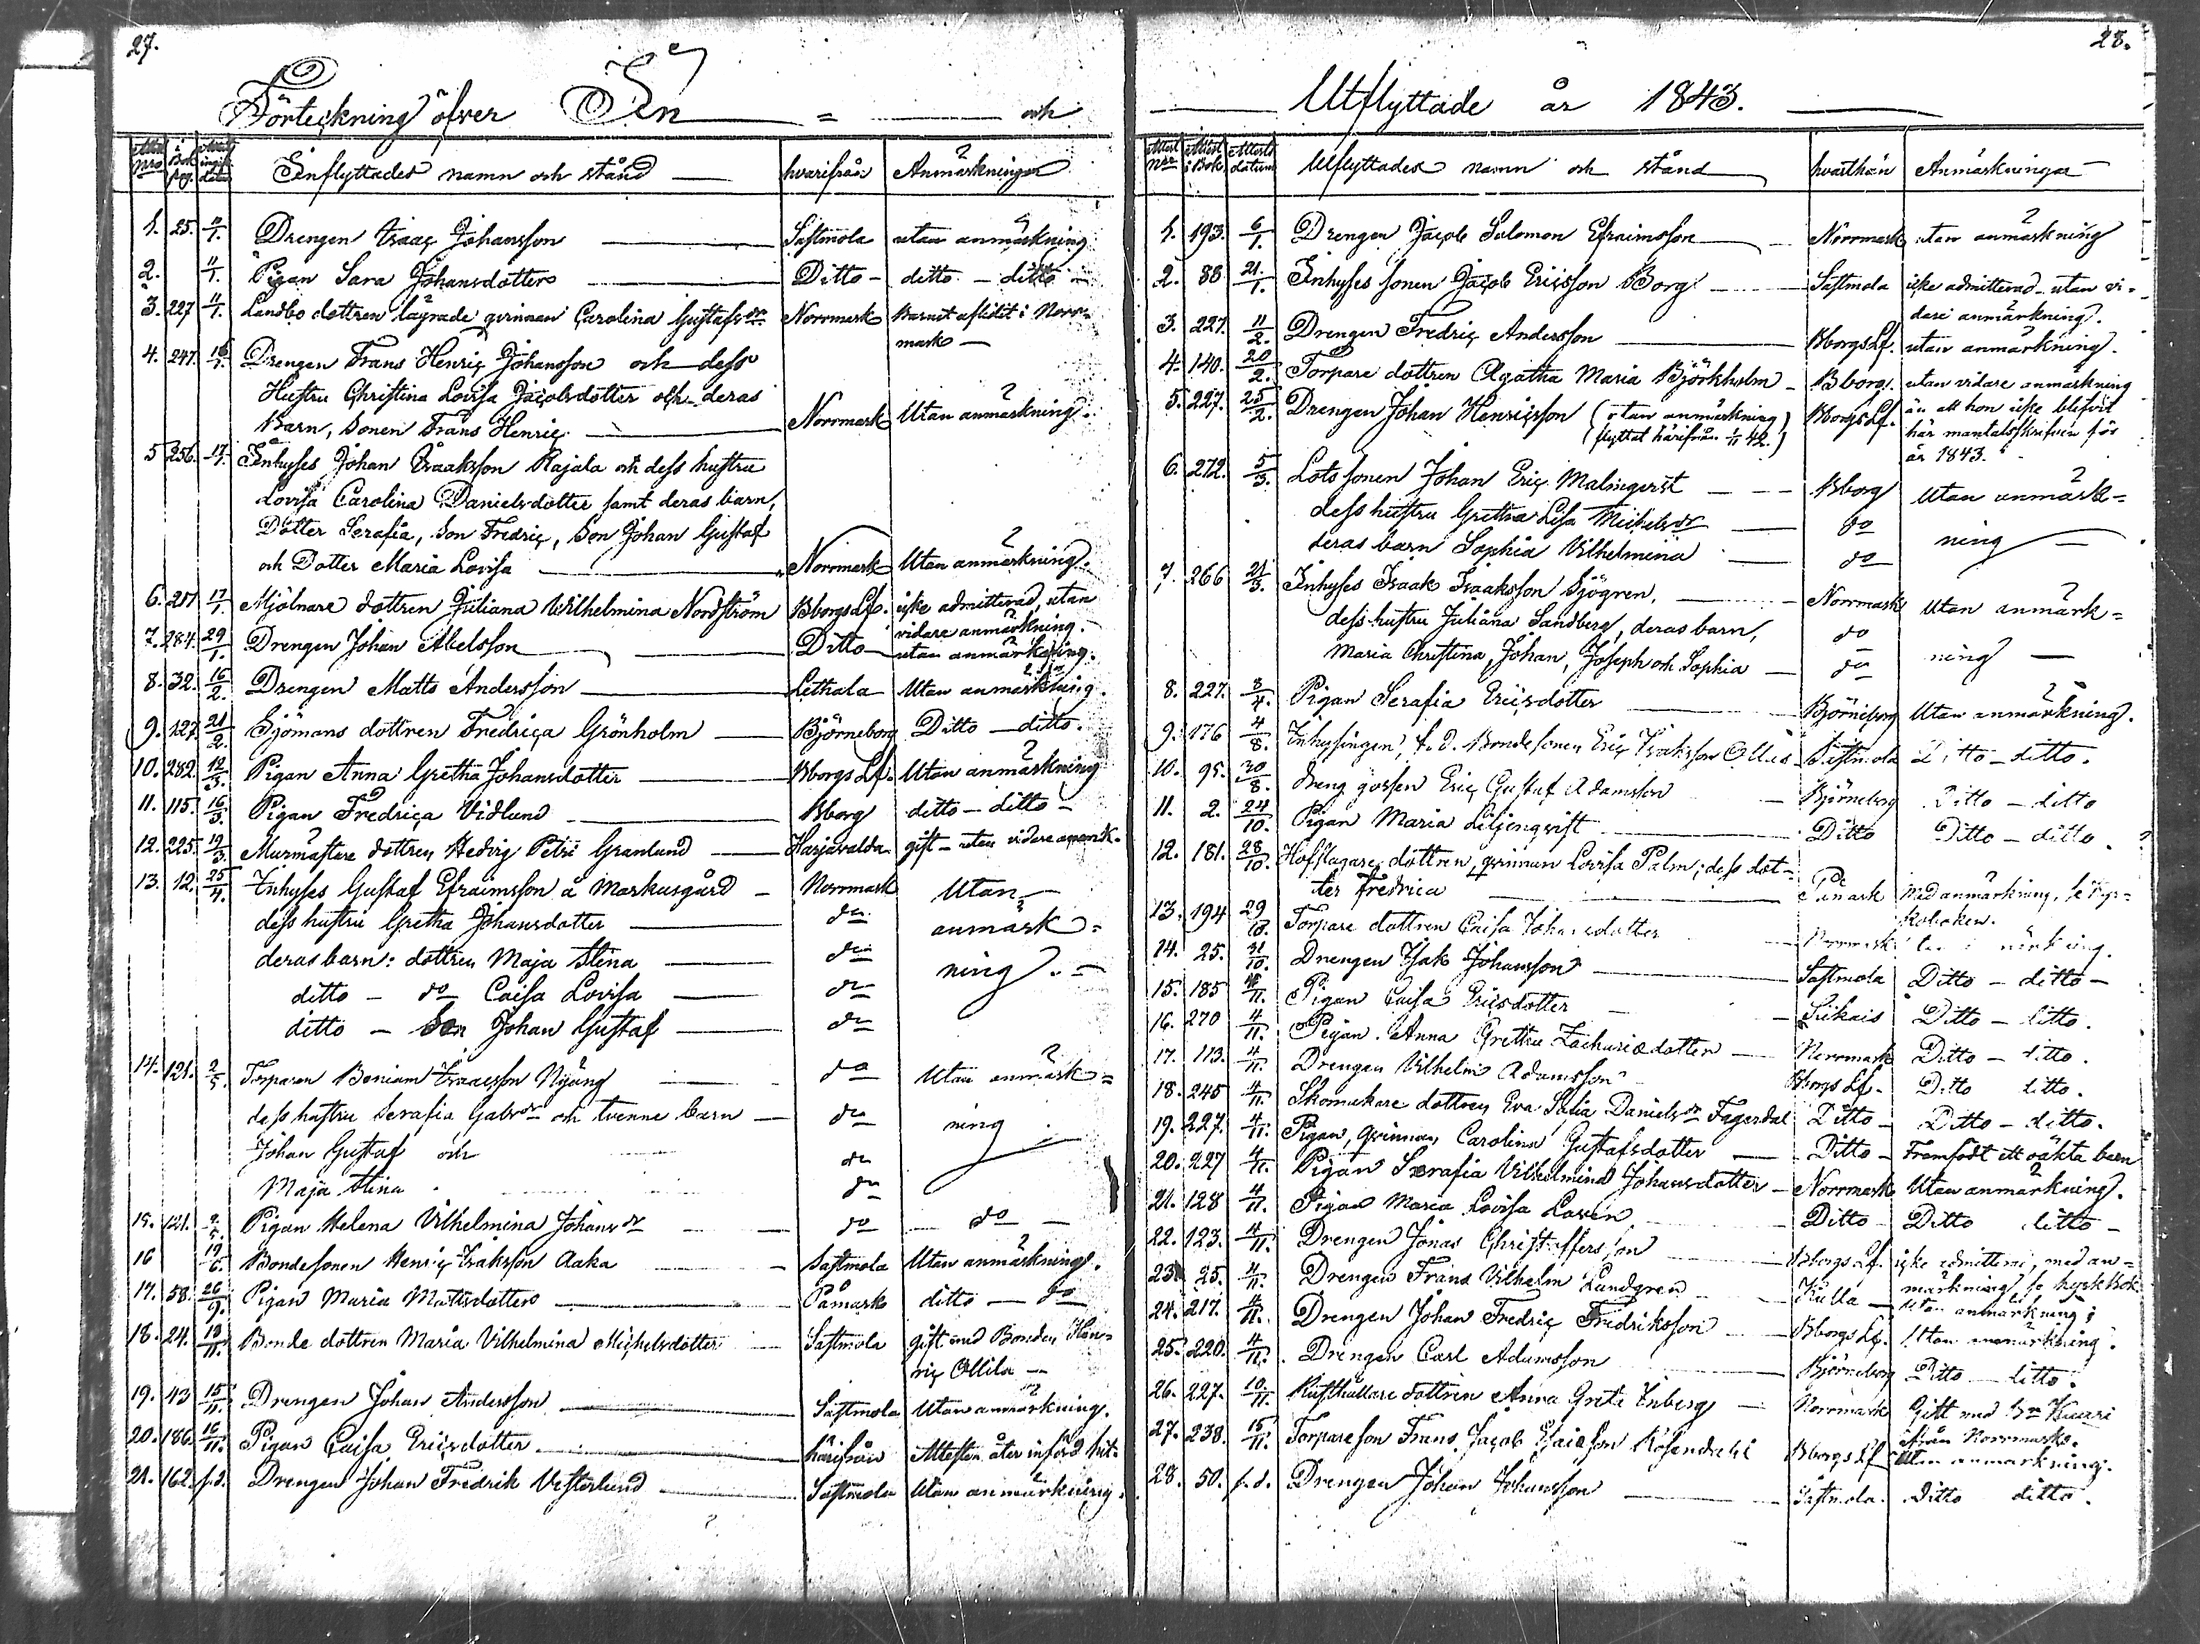 27.
Förteckning öfver In = och
Attest Nro | i Bok pag. | datum | Inflyttades namn och stånd | hvarifrån | Anmärkningar
1. 25. 11/1. Drengen Isaac Johansson Sastmola utan anmärkning
2. 11/1. Pigan Sara Johansdotter Ditto ditto – ditto
3. 227 11/1. Landbo dottren lägrade qvinnan Carolina Gustafsdr Norrmark Barnet aflidit i Norr=
mark
4. 247. Drengen Frans Henric Johansson och dess
Hustru Christina Lovisa Jacobsdotter och deras
Barn, Sonen Frans Henric Norrmark Utan anmärkning.
5 256. Inhyses Johan Isaaksson Rajala och dess hustru
Lovisa Carolina Danielsdotter samt deras barn,
Dotter Serafia, Son Fredric, Son Johan Gustaf
och Dotter Maria Lovisa Norrmark Utan anmärkning.
6. 17/1 Mjölnare dottren Juliana Wilhelmina Nordström Bborgs Lf. icke admitterad, utan
vidare anmärkning.
7. 284. 29/1. Drengen Johan Abelsson Ditto utan anmärkning.
8. 32. 16/2. Drengen Matts Andersson Lethala Utan anmärkning.
9. 127 21/2. Sjömans dottren Fredrica Grönholm Björneborg Ditto – ditto.
10. 282. 12/3. Pigan Anna Gretha Johansdotter Bborgs Lf. Utan anmärkning
11. 115. 16/3. Pigan Fredrica Vidlund Bborg ditto – ditto –
12. 225. 19/3. Murmästare dottren Hedvig Petri Granlund Harjavalda gift – utan vidare anmärk.
13. 12. 25/4. Inhyses Gustaf Efraimsson å Markusgård Norrmark Utan
dess hustru Gretha Johansdotter do anmärk=
deras barn: dottren Maja Stina do ning.
ditto – do Caisa Lovisa do
ditto – Son Johan Gustaf do
14. 121. 2/5. Torparen Beniam Isaacsson Nygång do Utan anmärk=
dess hustru Serafia Gabrdr och tvenne barn do ning
Johan Gustaf och do
Maja Stina do
15. 121. 2/5. Pigan Helena Vilhelmina Johansdr do do
16 19/6. Bondesonen Henric Isaksson Aaka Sastmola Utan anmärkning.
17. 58. 26/9. Pigan Maria Mattsdotter Påmark ditto – do
18. 24. Bonde dottren Maria Vilhelmina Michelsdotter Sastmola gift med Bonden Hen=
ric Ollila
19. 43 15/11. Drengen Johan Andersson Sastmola Utan anmärkning.
20. 186. 16/11. Pigan Caisa Ericsdotter härifrån Attesten åter införd hit.
21. 162. s.d. Drengen Johan Fredrik Vesterlund Sastmola Utan anmärkning.
28.
Utflyttade år 1843.
Attest Nro | Attest i Bok | Attests datum | Utflyttades namn och stånd | hvarthän | Anmärkningar
1. 193. 6/1. Drengen Jacob Salomon Efraimsson Norrmark utan anmärkning
2. 88 21/1. Inhyses sonen Jacob Ericsson Borg Sastmola icke admitterad utan vi=
dare anmärkning.
3. 227. 11/2. Drengen Fredric Andersson Bborgs Lf. utan anmärkning.
4. 140. 20/2. Torpare dottren Agatha Maria Björkholm Bborgs. utan vidare anmärkning
än att hon icke blifvit
här mantalsskrifven för
år 1843.
5. 227. 25/2. Drengen Johan Henricsson (utan anmärkning) Bborgs Lf.
(flyttat härifrån 42.)
6. 272. 5/3. Lots sonen Johan Eric Malmqvist Bborg Utan anmärk=
dess hustru Gretha Lisa Michelsdr do ning
deras barn Sophia Vilhelmina do
7. 266 21/3. Inhyses Isaak Isaaksson Sjögren, Norrmark Utan anmärk=
dess hustru Juliana Sandberg, deras barn, do
Maria Christina, Johan, Joseph och Sophia do ning
8. 227. 3/4. Pigan Serafia Ericsdotter Björneborg Utan anmärkning.
9. 176 4/8. Inhysingen, f. d. Bondesonen Eric Isaksson Sastmola Ditto – ditto.
10. 95. 30/8. Dreng gossen Eric Gustaf Adamsson Björneborg Ditto – ditto
11. 2. 24/10. Pigan Maria Liljenqvist Ditto Ditto – ditto.
12. 181. 28/10. Hofslagare dottren, qvinnan Lovisa Palm; dess dot=
ter Fredrica Påmark Med anmärkning, se Kyr=
koboken.
13. 194 29/10. Torpare dottren Caisa Johansdotter Norrmark
14. 25. 31/10. Drengen Isak Johansson Sastmola Ditto – ditto –
15. 185 Pigan Caisa Ericsdotter Siikais Ditto – ditto.
16. 270 4/11. Pigan Anna Gretha Zachariedotter Norrmark Ditto – ditto.
17. 113. 4/11. Drengen Vilhelm Adamsson Bborgs Lf. Ditto ditto.
18. 245 4/11. Skomakare dottren Eva Sofia Danielsdr Fagerdal Ditto Ditto – ditto.
19. 227. 4/11. Pigan, qvinnan Carolina Gustafsdotter Ditto Framfödt ett oäkta barn
20. 227 4/11. Pigan Serafia Vilhelmina Johansdotter Norrmark Utan anmärkning.
21. 128 4/11. Pigan Maria Lovisa Laven Ditto Ditto ditto
22. 123. 4/11. Drengen Jonas Christoffersson Bborgs Lf. icke admitterad, med an=
märkning, se kyrk Bok
23. 25. 4/11. Drengen Frans Vilhelm Lundgren Kulla utan anmärkning;
24. 217. 4/11. Drengen Johan Fredric Fredriksson Bborgs Lf. Utan anmärkning.
25. 220. 4/11. Drengen Carl Adamsson Björneborg Ditto ditto.
26. 227. 10/11. Rusthållare dottren Anna Greta Enberg Norrmark Gift med Kuuri
ifrån Norrmark.
27. 238. 15/11. Torpareson Frans Jacob Esaiasson Bborgs Lf Utan anmärkning.
28. 50. s.d. Drengen Johan Johansson Sastmola. Ditto ditto.